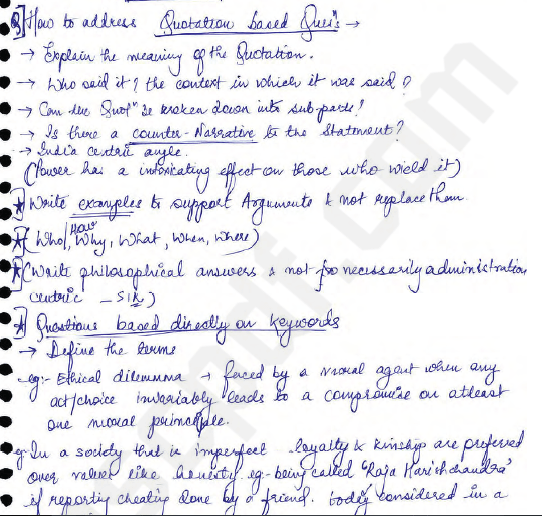 Q] How to address Quotation based Ques's →
→ Explain the meaning of the Quotation.
→ Who said it? the context in which it was said?
→ Can the Quotⁿ be broken down into subparts?
→ Is there a counter-Narrative to the statement?
→ India centric angle.
(Power has a intoxicating effect on those who wield it)
★] Write examples to support Arguments & not replace them
★ (Who, How, Why, What, When, Where)
★ (Write philosophical answers & not necessarily administration
centric - SIR)
★] Questions based directly on keywords
→ Define the terms
eg:- Ethical dilemma → faced by a moral agent when any
act/choice invariably leads to a compromise on atleast
one moral principle.
eg: In a society that is imperfect loyalty & kinship are preferred
over values like honesty eg:- being called "Raja Harishchandra"
if reporting cheating done by a friend. today considered in a